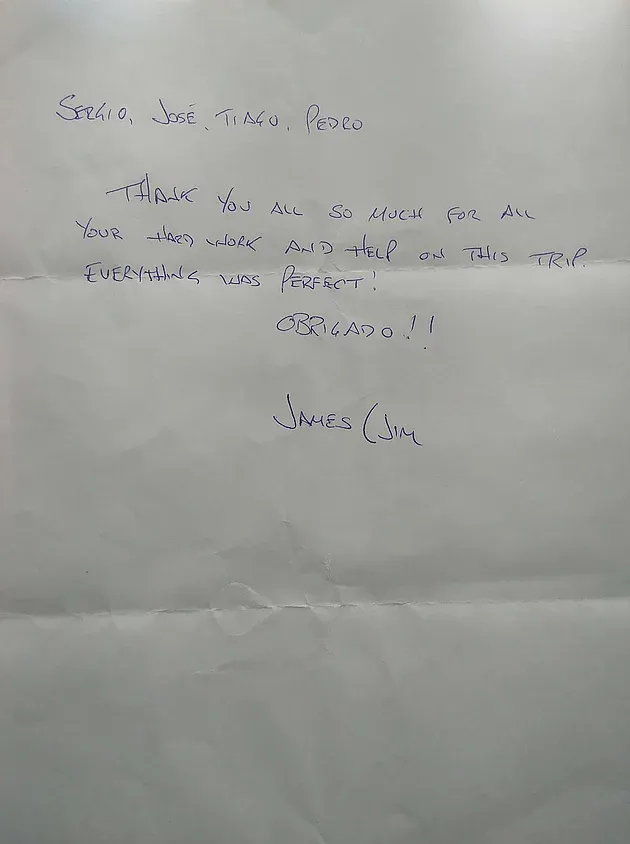 SERGIO, JOSÉ, TIAGO, PEDRO
THANK YOU ALL SO MUCH FOR ALL
YOUR HARD WORK AND HELP ON THIS TRIP.
EVERYTHING WAS PERFECT!
OBRIGADO!!
JAMES (JIM